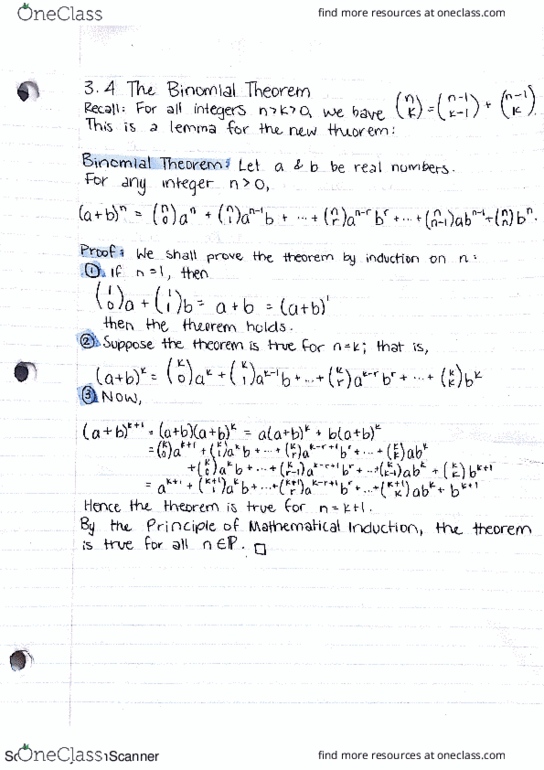 OneClass find more resources at oneclass.com
3.4 The Binomial Theorem
Recall: For all integers n>k>0, we have (n k) = (n-1 k-1) + (n-1 k).
This is a lemma for the new theorem:
Binomial Theorem: Let a & b be real numbers.
For any integer n>0,
(a+b)^n = (n 0)a^n + (n 1)a^{n-1}b + ... + (n r)a^{n-r}b^r + ... + (n n-1)ab^{n-1} + (n n)b^n.
Proof: We shall prove the theorem by induction on n:
① If n=1, then
(1 0)a + (1 1)b = a+b = (a+b)^1
then the theorem holds.
② Suppose the theorem is true for n=k; that is,
(a+b)^k = (k 0)a^k + (k 1)a^{k-1}b + ... + (k r)a^{k-r}b^r + ... + (k k)b^k
③ Now,
(a+b)^{k+1} = (a+b)(a+b)^k = a(a+b)^k + b(a+b)^k
= (k 0)a^{k+1} + (k 1)a^k b + ... + (k r)a^{k-r+1}b^r + ... + (k k)ab^k
+ (k 0)a^k b + ... + (k r-1)a^{k-r+1}b^r + ... + (k k-1)ab^k + (k k)b^{k+1}
= a^{k+1} + (k+1 1)a^k b + ... + (k+1 r)a^{k-r+1}b^r + ... + (k+1 k)ab^k + b^{k+1}
Hence the theorem is true for n=k+1.
By the Principle of Mathematical Induction, the theorem
is true for all n∈ℙ. □
OneClass Scanner find more resources at oneclass.com